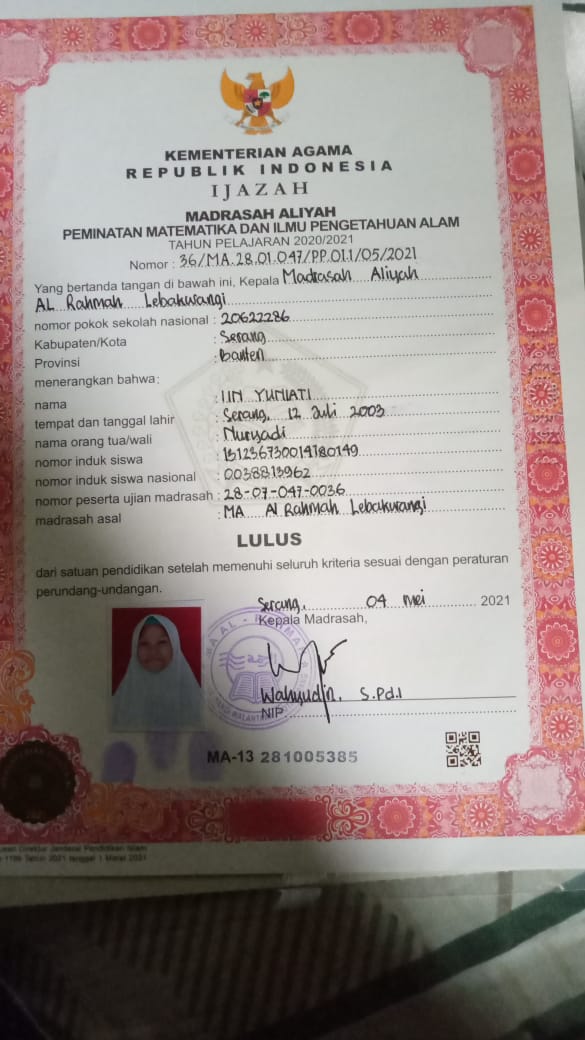 KEMENTERIAN AGAMA
REPUBLIK INDONESIA
IJAZAH
MADRASAH ALIYAH
PEMINATAN MATEMATIKA DAN ILMU PENGETAHUAN ALAM
TAHUN PELAJARAN 2020/2021
Nomor : 36/MA.28.01.047/PP.01.1/05/2021
Yang bertanda tangan di bawah ini, Kepala Madrasah Aliyah
AL Rahmah Lebakwangi
nomor pokok sekolah nasional : 20622286
Kabupaten/Kota : Serang
Provinsi : Banten
menerangkan bahwa:
nama : IIN YUNIATI
tempat dan tanggal lahir : Serang, 12 Juli 2003
nama orang tua/wali : Nuryadi
nomor induk siswa : 131236730014180149
nomor induk siswa nasional : 0038813962
nomor peserta ujian madrasah : 28-07-047-0036
madrasah asal : MA Al Rahmah Lebakwangi
LULUS
dari satuan pendidikan setelah memenuhi seluruh kriteria sesuai dengan peraturan
perundang-undangan.
Serang, 04 Mei 2021
Kepala Madrasah,
MA AL - RAHMAH
Wahyudin, S.Pd.I
NIP.
MA-13 281005385
Direktur Jenderal Pendidikan Islam
Tahun 2021 tanggal 1 Maret 2021